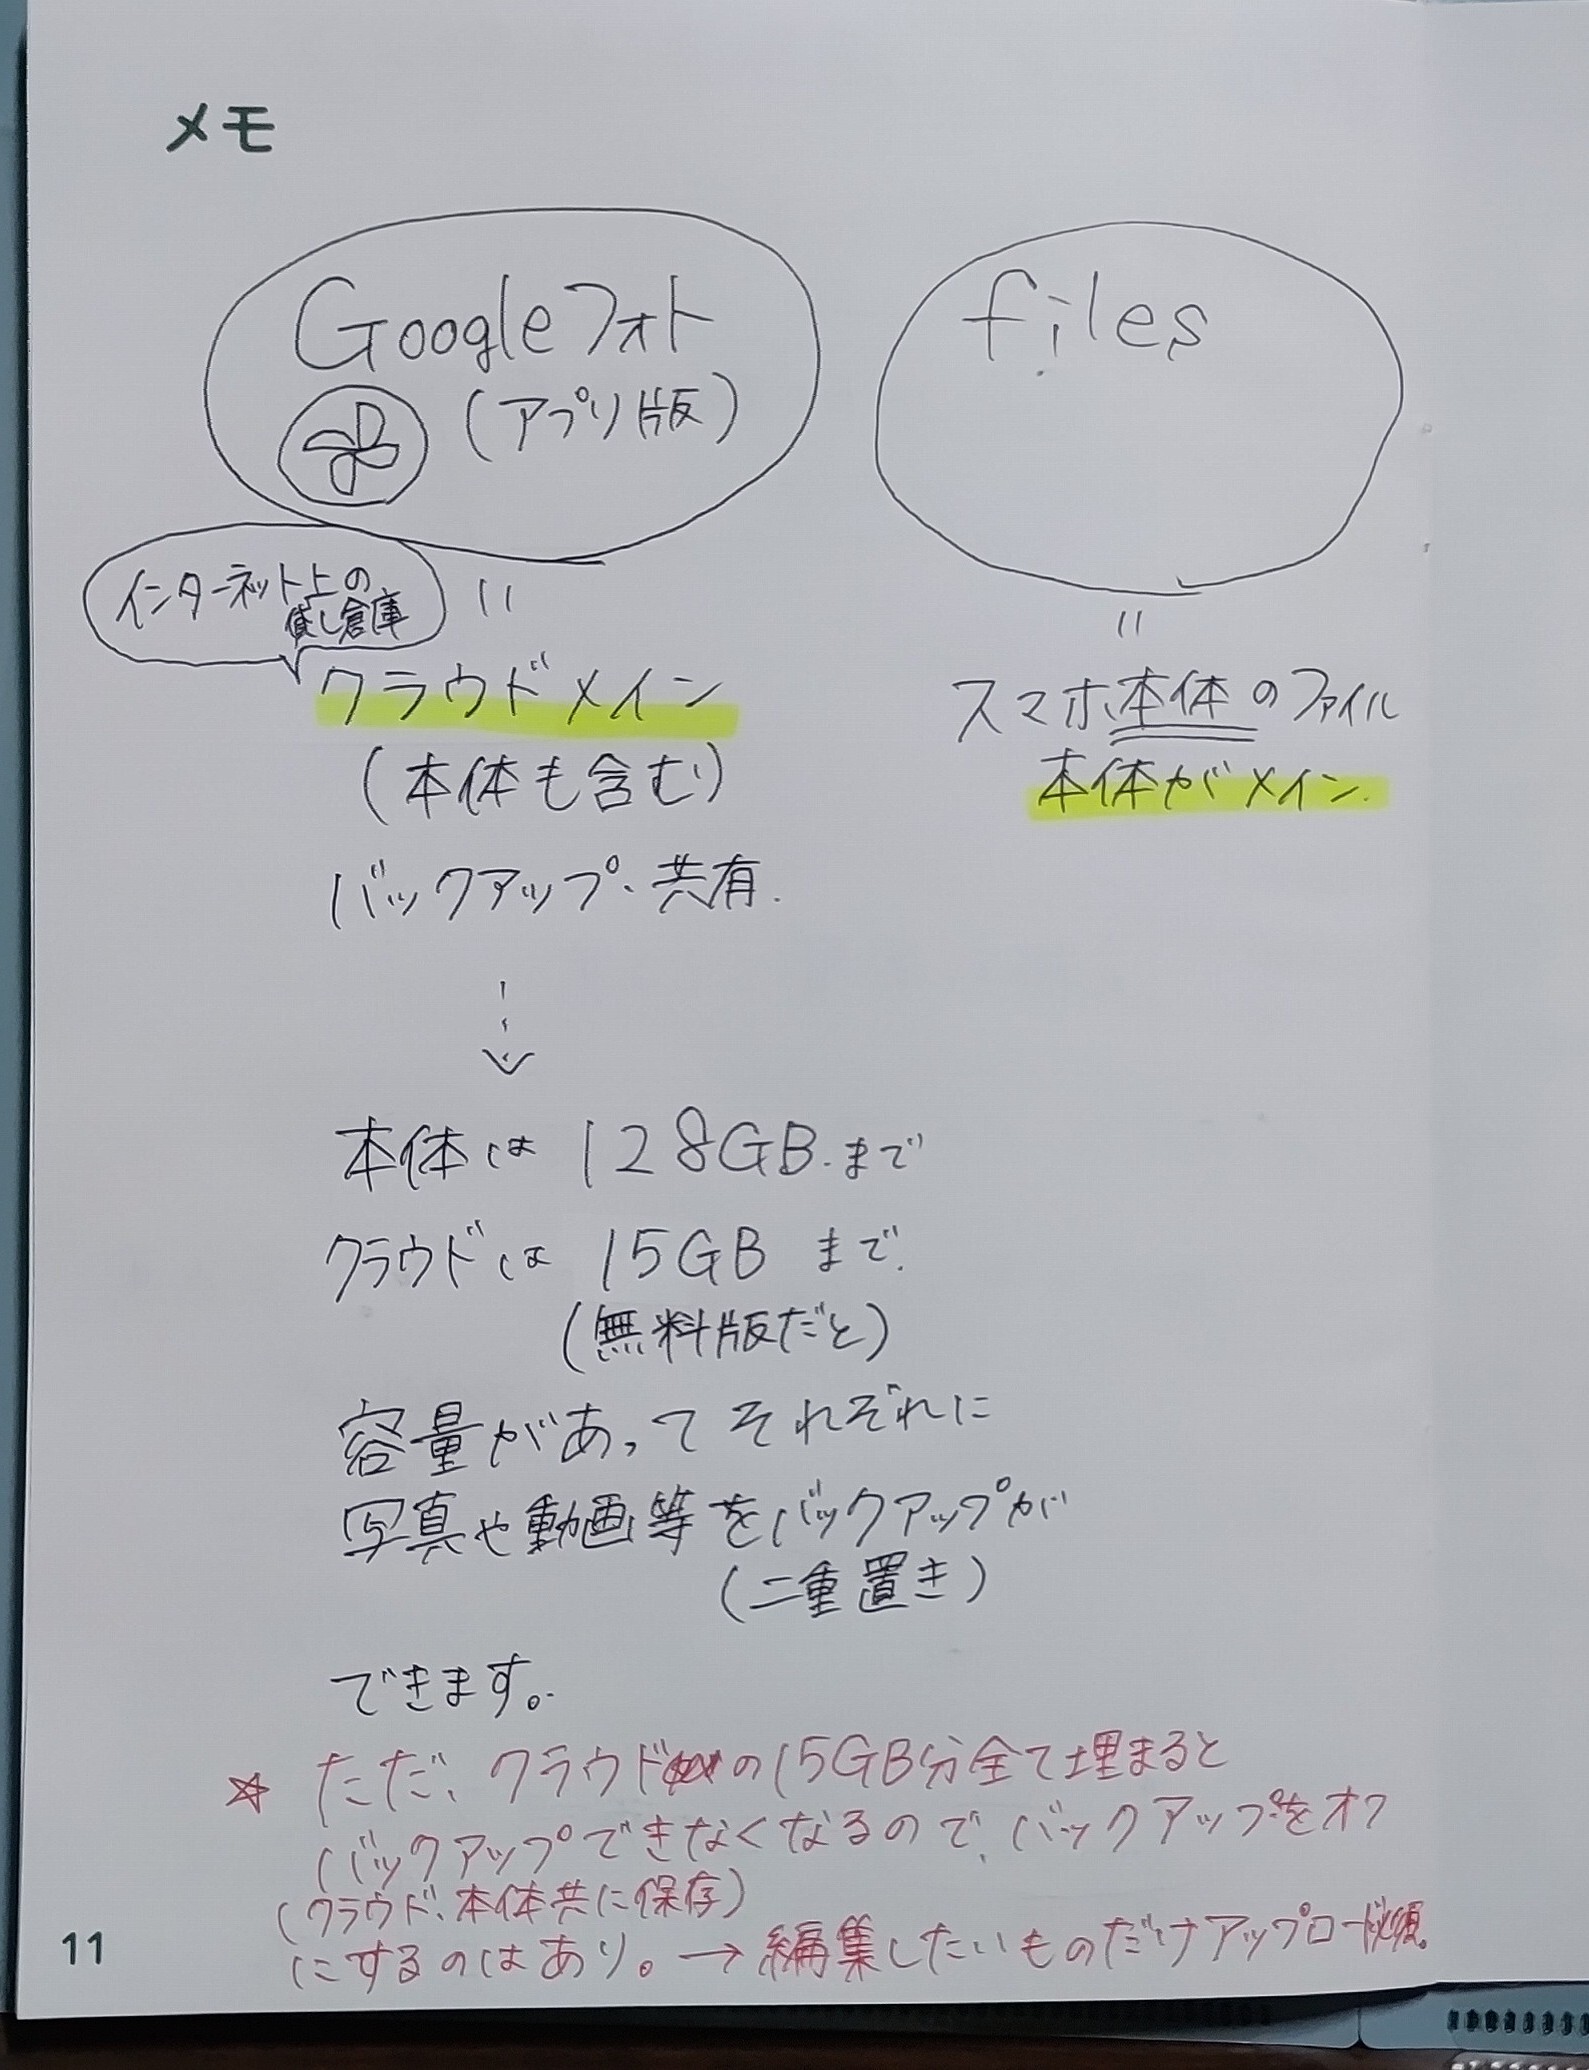 メモ
Googleフォト
(アプリ版)
files
インターネット上の
貸し倉庫
クラウドメイン
(本体も含む)
バックアップ、共有.
スマホ本体のファイル
本体がメイン.
本体は 128GB.まで
クラウドは 15GB まで.
(無料版だと)
容量があってそれぞれに
写真や動画等をバックアップが
(二重置き)
できます。
☆ ただ、クラウドの15GB分全て埋まると
バックアップできなくなるので、バックアップをオフ
(クラウド、本体共に保存)
にするのはあり。→編集したいものだけアップロード必須。
11